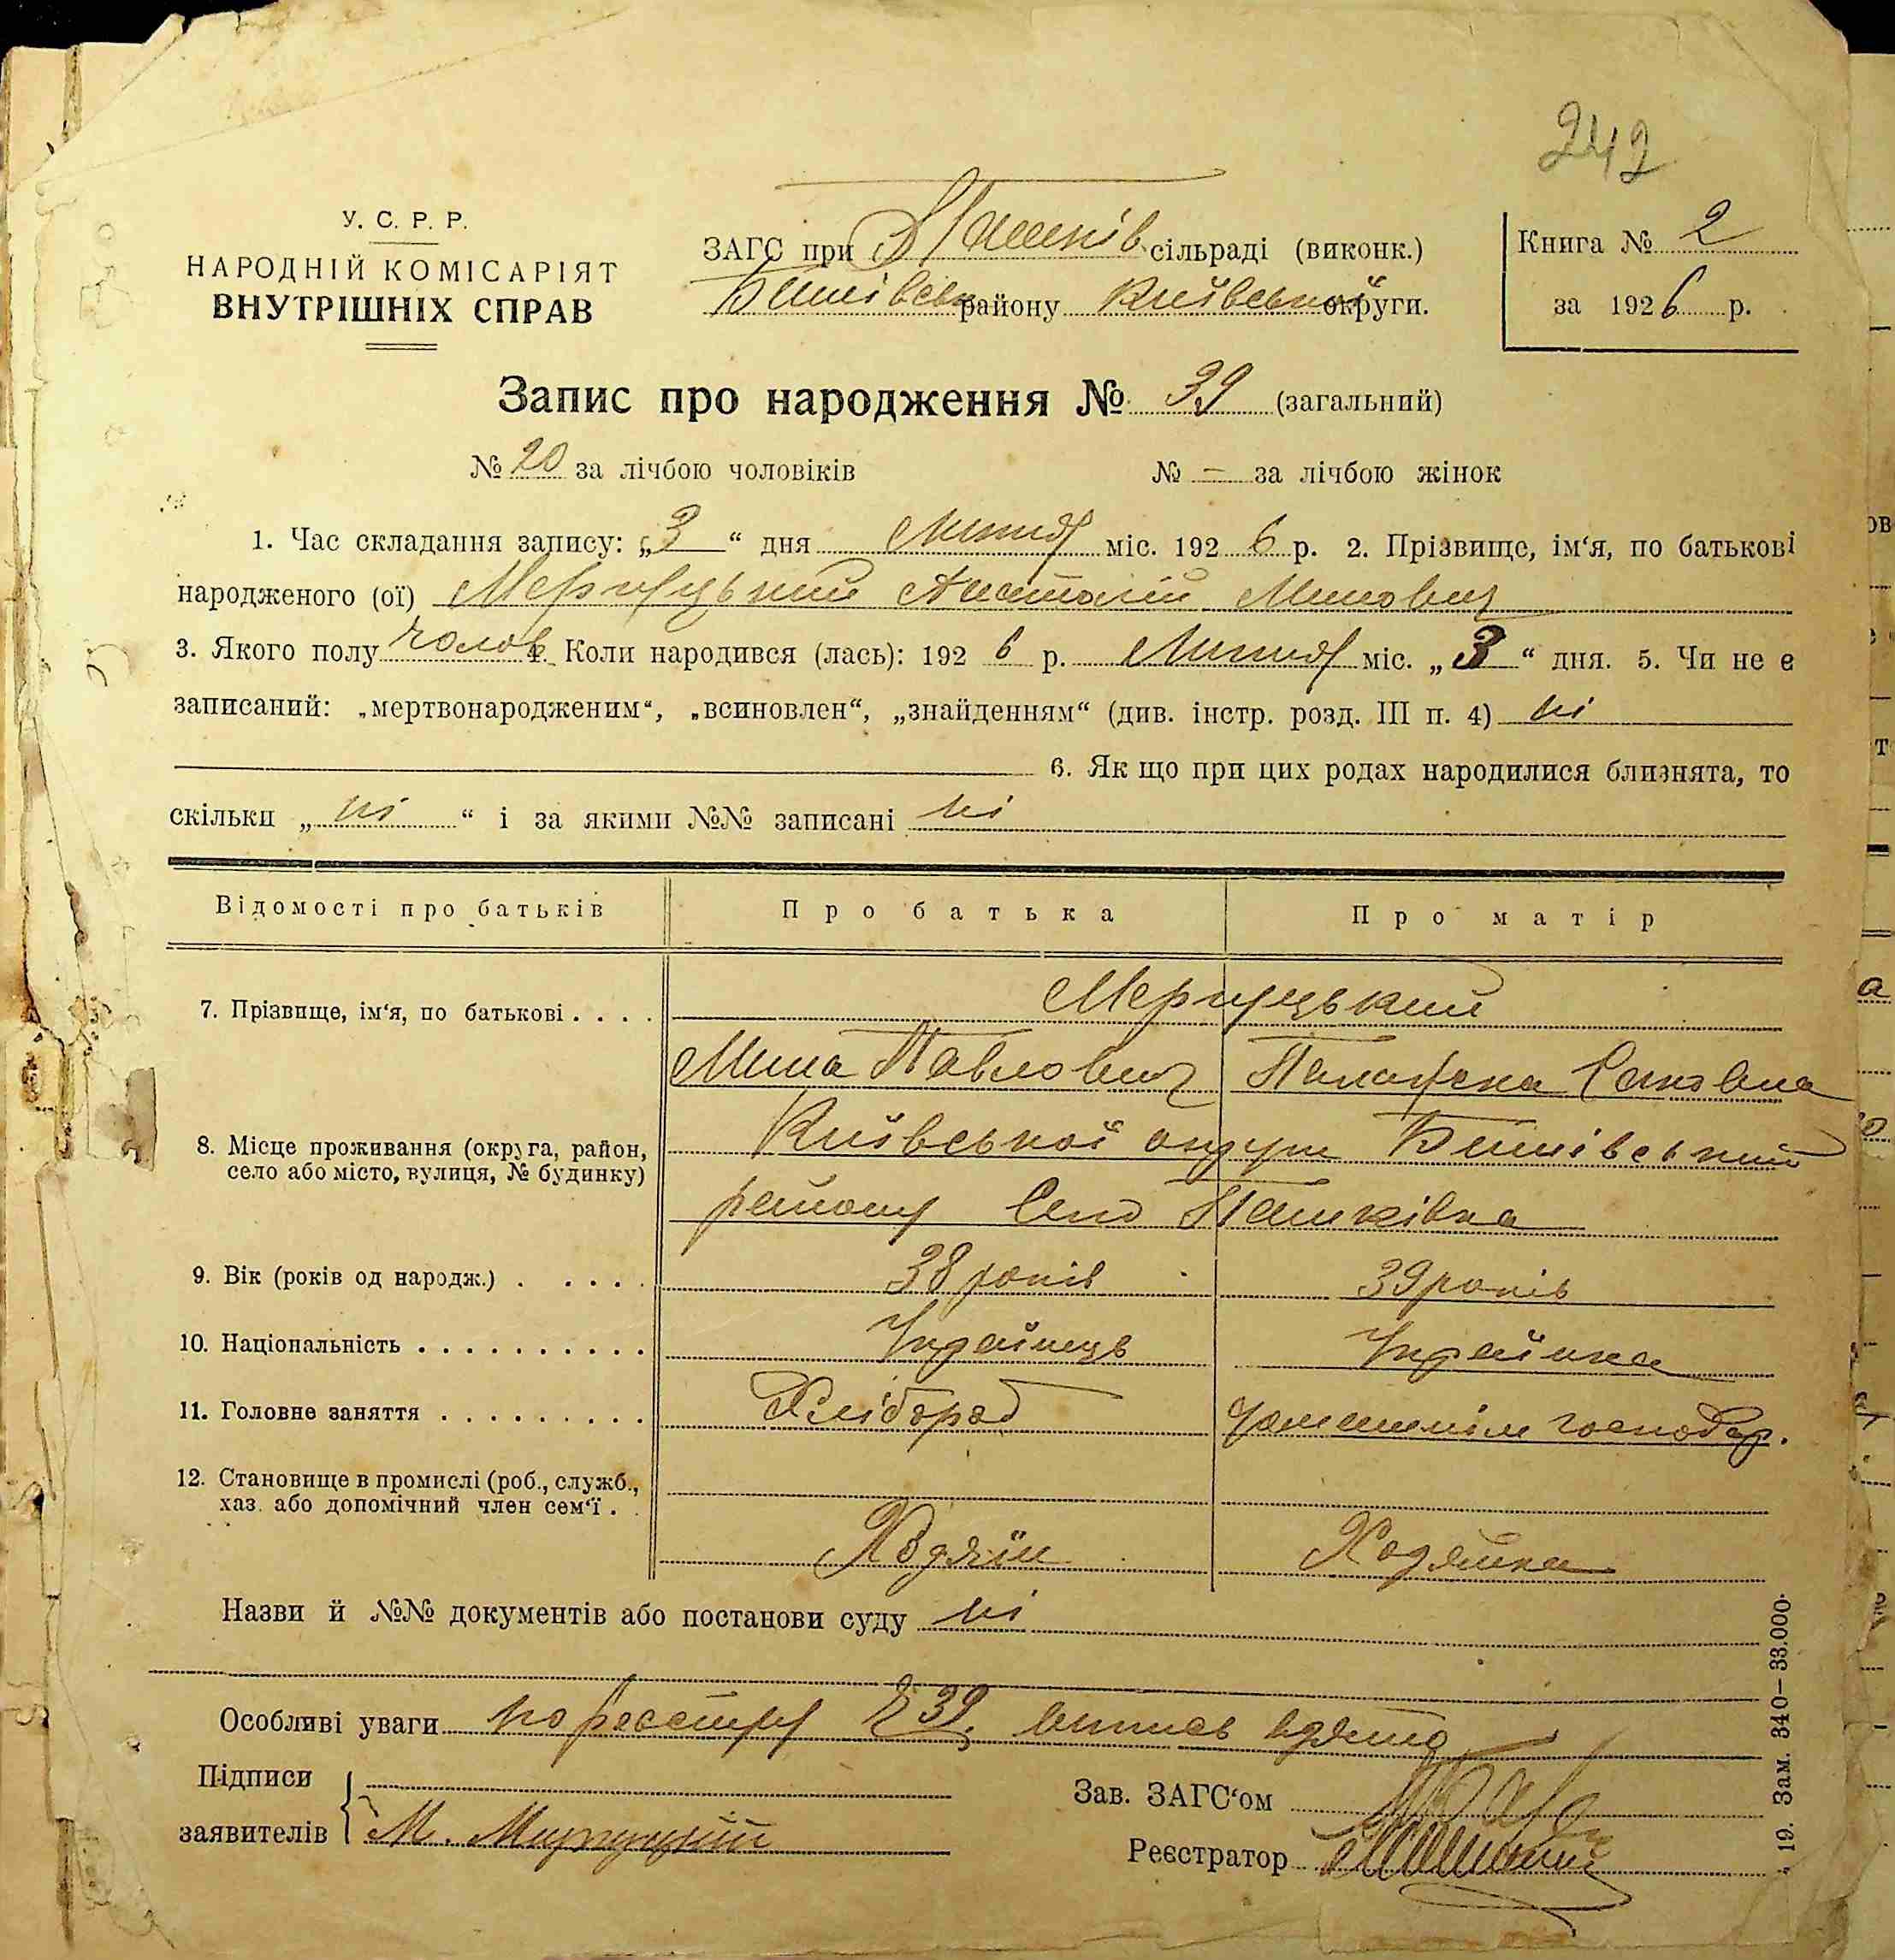 242
У. С. Р. Р.
НАРОДНІЙ КОМІСАРІЯТ
ВНУТРІШНІХ СПРАВ
ЗАГС при Пашків. сільраді (виконк.)
Бишівськ району Київської округи.
Книга № 2
за 1926 р.
Запис про народження № 39 (загальний)
№ 20 за лічбою чоловіків № — за лічбою жінок
1. Час складання запису: „3“ дня Липня міс. 1926 р. 2. Прізвище, ім‘я, по батькові
народженого (ої) Мерчуцький Анатолій Минович
3. Якого полу чолов. 4. Коли народився (лась): 1926 р. Липня міс. „3“ дня. 5. Чи не є
записаний: „мертвонародженим“, „всиновлен“, „знайденням“ (див. інстр. розд. III п. 4) ні
6. Як що при цих родах народилися близнята, то
скільки „ні“ і за якими №№ записані ні
Відомості про батьків Про батька Про матір
7. Прізвище, ім‘я, по батькові . . . . Мерчуцький
Мина Павлович Палажка
8. Місце проживання (округа, район,
село або місто, вулиця, № будинку)
Київської округи Бишівський
району Село Пашківка
9. Вік (років од народж.) . . . . . 38 років 39 років
10. Національність . . . . . . . . . . Українець Українка
11. Головне заняття . . . . . . . . . Хлібороб господар.
12. Становище в промислі (роб., служб.,
хаз. або допомічний член сем‘ї . .
Хозяїн Хозяйка
Назви й №№ документів або постанови суду ні
Особливі уваги по реєстру № 39
Підписи
заявителів М.
Зав. ЗАГС‘ом
Реєстратор
19. Зам. 340—33.000.